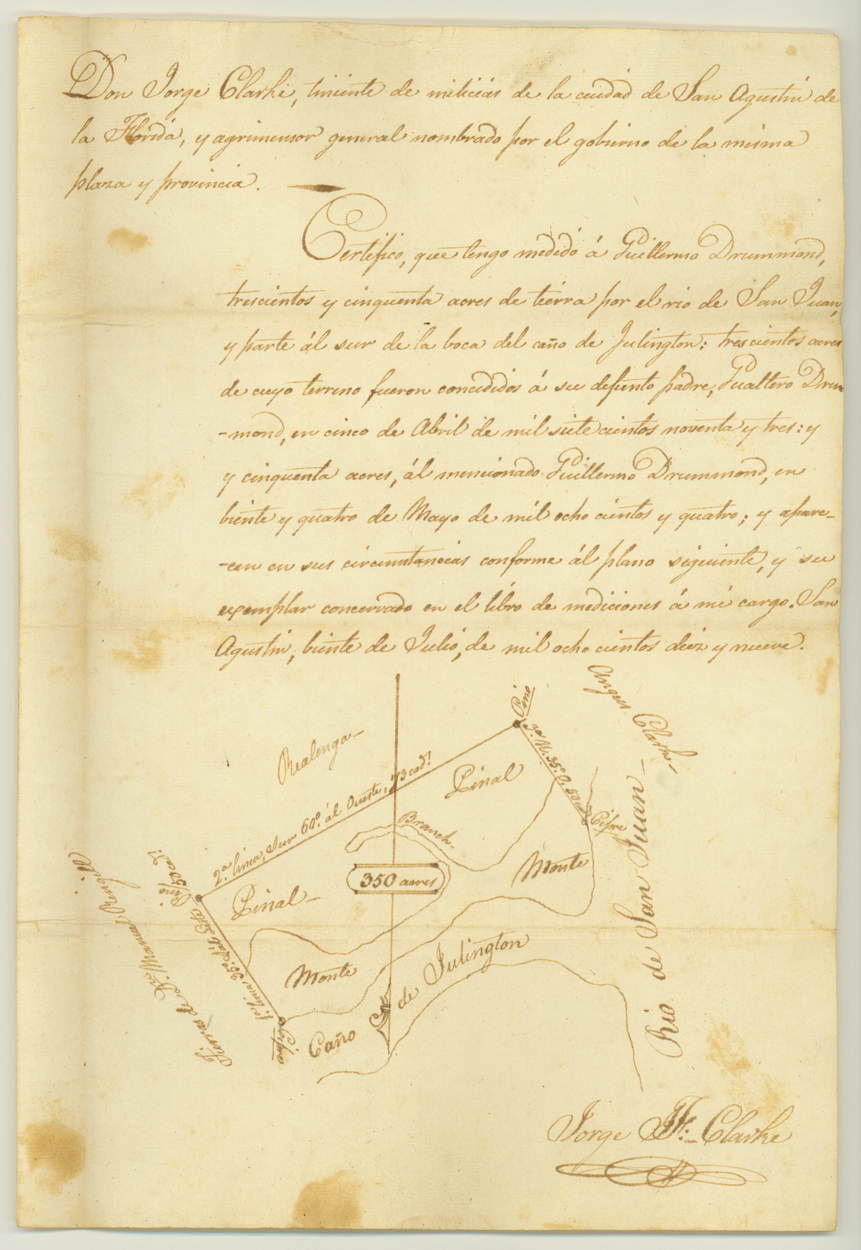 Don Jorge Clarke, tiniente de milicias de la ciudad de San Agustin de
la Florida, y agrimensor general nombrado por el gobierno de la misma
plaza y provincia.
Certifico, que tengo medido á Guillermo Drummond,
trescientos y cinquenta acres de tierra por el rio de San Juan,
y parte ál sur de la boca del caño de Julington: trescientos acres
de cuyo terreno fueron concedidos á su defunto padre, Gualtero Drum
-mond, en cinco de Abril de mil siete cientos noventa y tres: y
y cinquenta acres, ál mencionado Guillermo Drummond, en
biente y quatro de Mayo de mil ocho cientos y quatro; y apare-
-cen en sus circumtancias conforme ál plano siguiente, y su
exemplar concervado en el libro de mediciones á mi cargo. San
Agustin, biente de Julio, de mil ocho cientos diez y nueve.
Angus Clark
Pino
Realenga
2.a linea, Sur 60.° ál Oueste, 73 cad.s
Pinal
3.a N. 35.° O. 50 cad.s
Cipre
Branch.
Rio de San Juan
350 acres
Monte
Pino
Pinal
1.a linea 35.°
Cipre
Monte
Tierras de D.n Manuel
Caño de Julington
Jorge J. F. Clarke